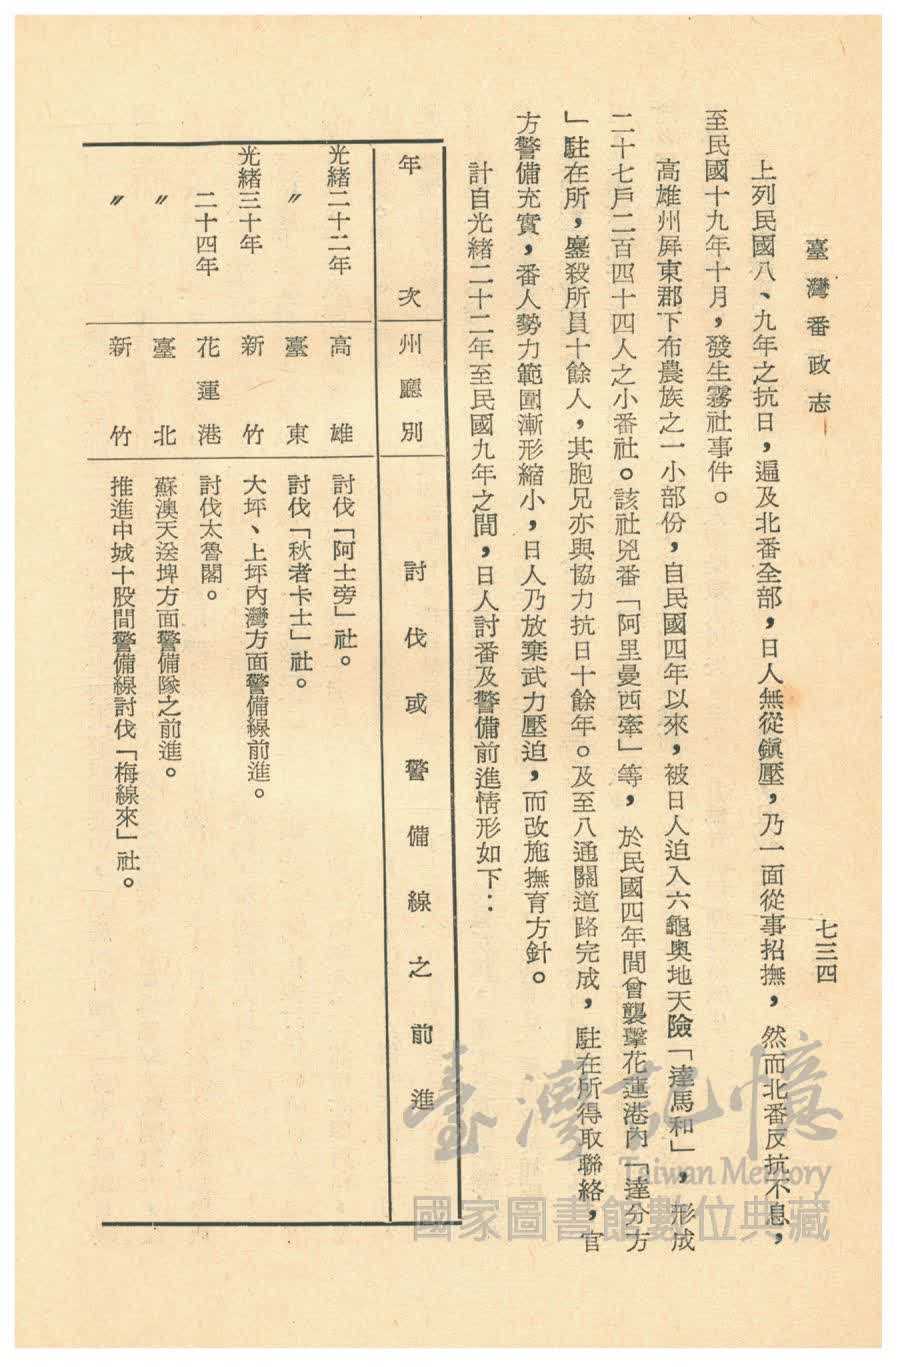 臺灣番政志
七三四
上列民國八、九年之抗日，遍及北番全部，日人無從鎭壓，乃一面從事招撫，然而北番反抗不息，
至民國十九年十月，發生霧社事件。
高雄州屛東郡下布農族之一小部份，自民國四年以來，被日人迫入六龜奥地天險「達馬和」，形成
二十七戶二百四十四人之小番社。該社兇番「阿里曼西牽」等，於民國四年間曾襲擊花蓮港內「達分方
」駐在所，鏖殺所員十餘人，其胞兄亦與協力抗日十餘年。及至八通關道路完成，駐在所得取聯絡，官
方警備充實，番人勢力範圍漸形縮小，日人乃放棄武力壓迫，而改施撫育方針。
計自光緒二十二年至民國九年之間，日人討番及警備前進情形如下：
年次 州廳別 討伐或警備線之前進
光緒二十二年 高雄 討伐「阿士旁」社。
〃 臺東 討伐「秋者卡士」社。
光緒三十年 新竹 大坪、上坪內灣方面警備線前進。
二十四年 花蓮港 討伐太魯閣。
〃 臺北 蘇澳天送埤方面警備隊之前進。
〃 新竹 推進中城十股間警備線討伐「梅線來」社。
臺灣記憶
Taiwan Memory
國家圖書館數位典藏